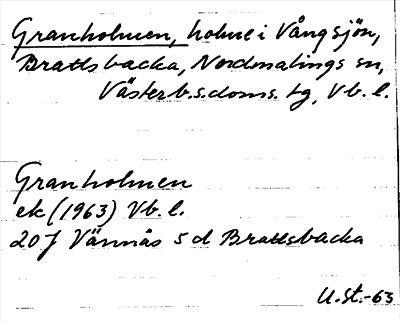 Granholmen, holme i Vångsjön,
Brattsbacka, Nordmalings sn,
Västerb.s.doms. tg, Vb. l.
Granholmen
ek (1963) Vb. l.
20J Vännäs 5 d Brattsbacka
U.St.-63